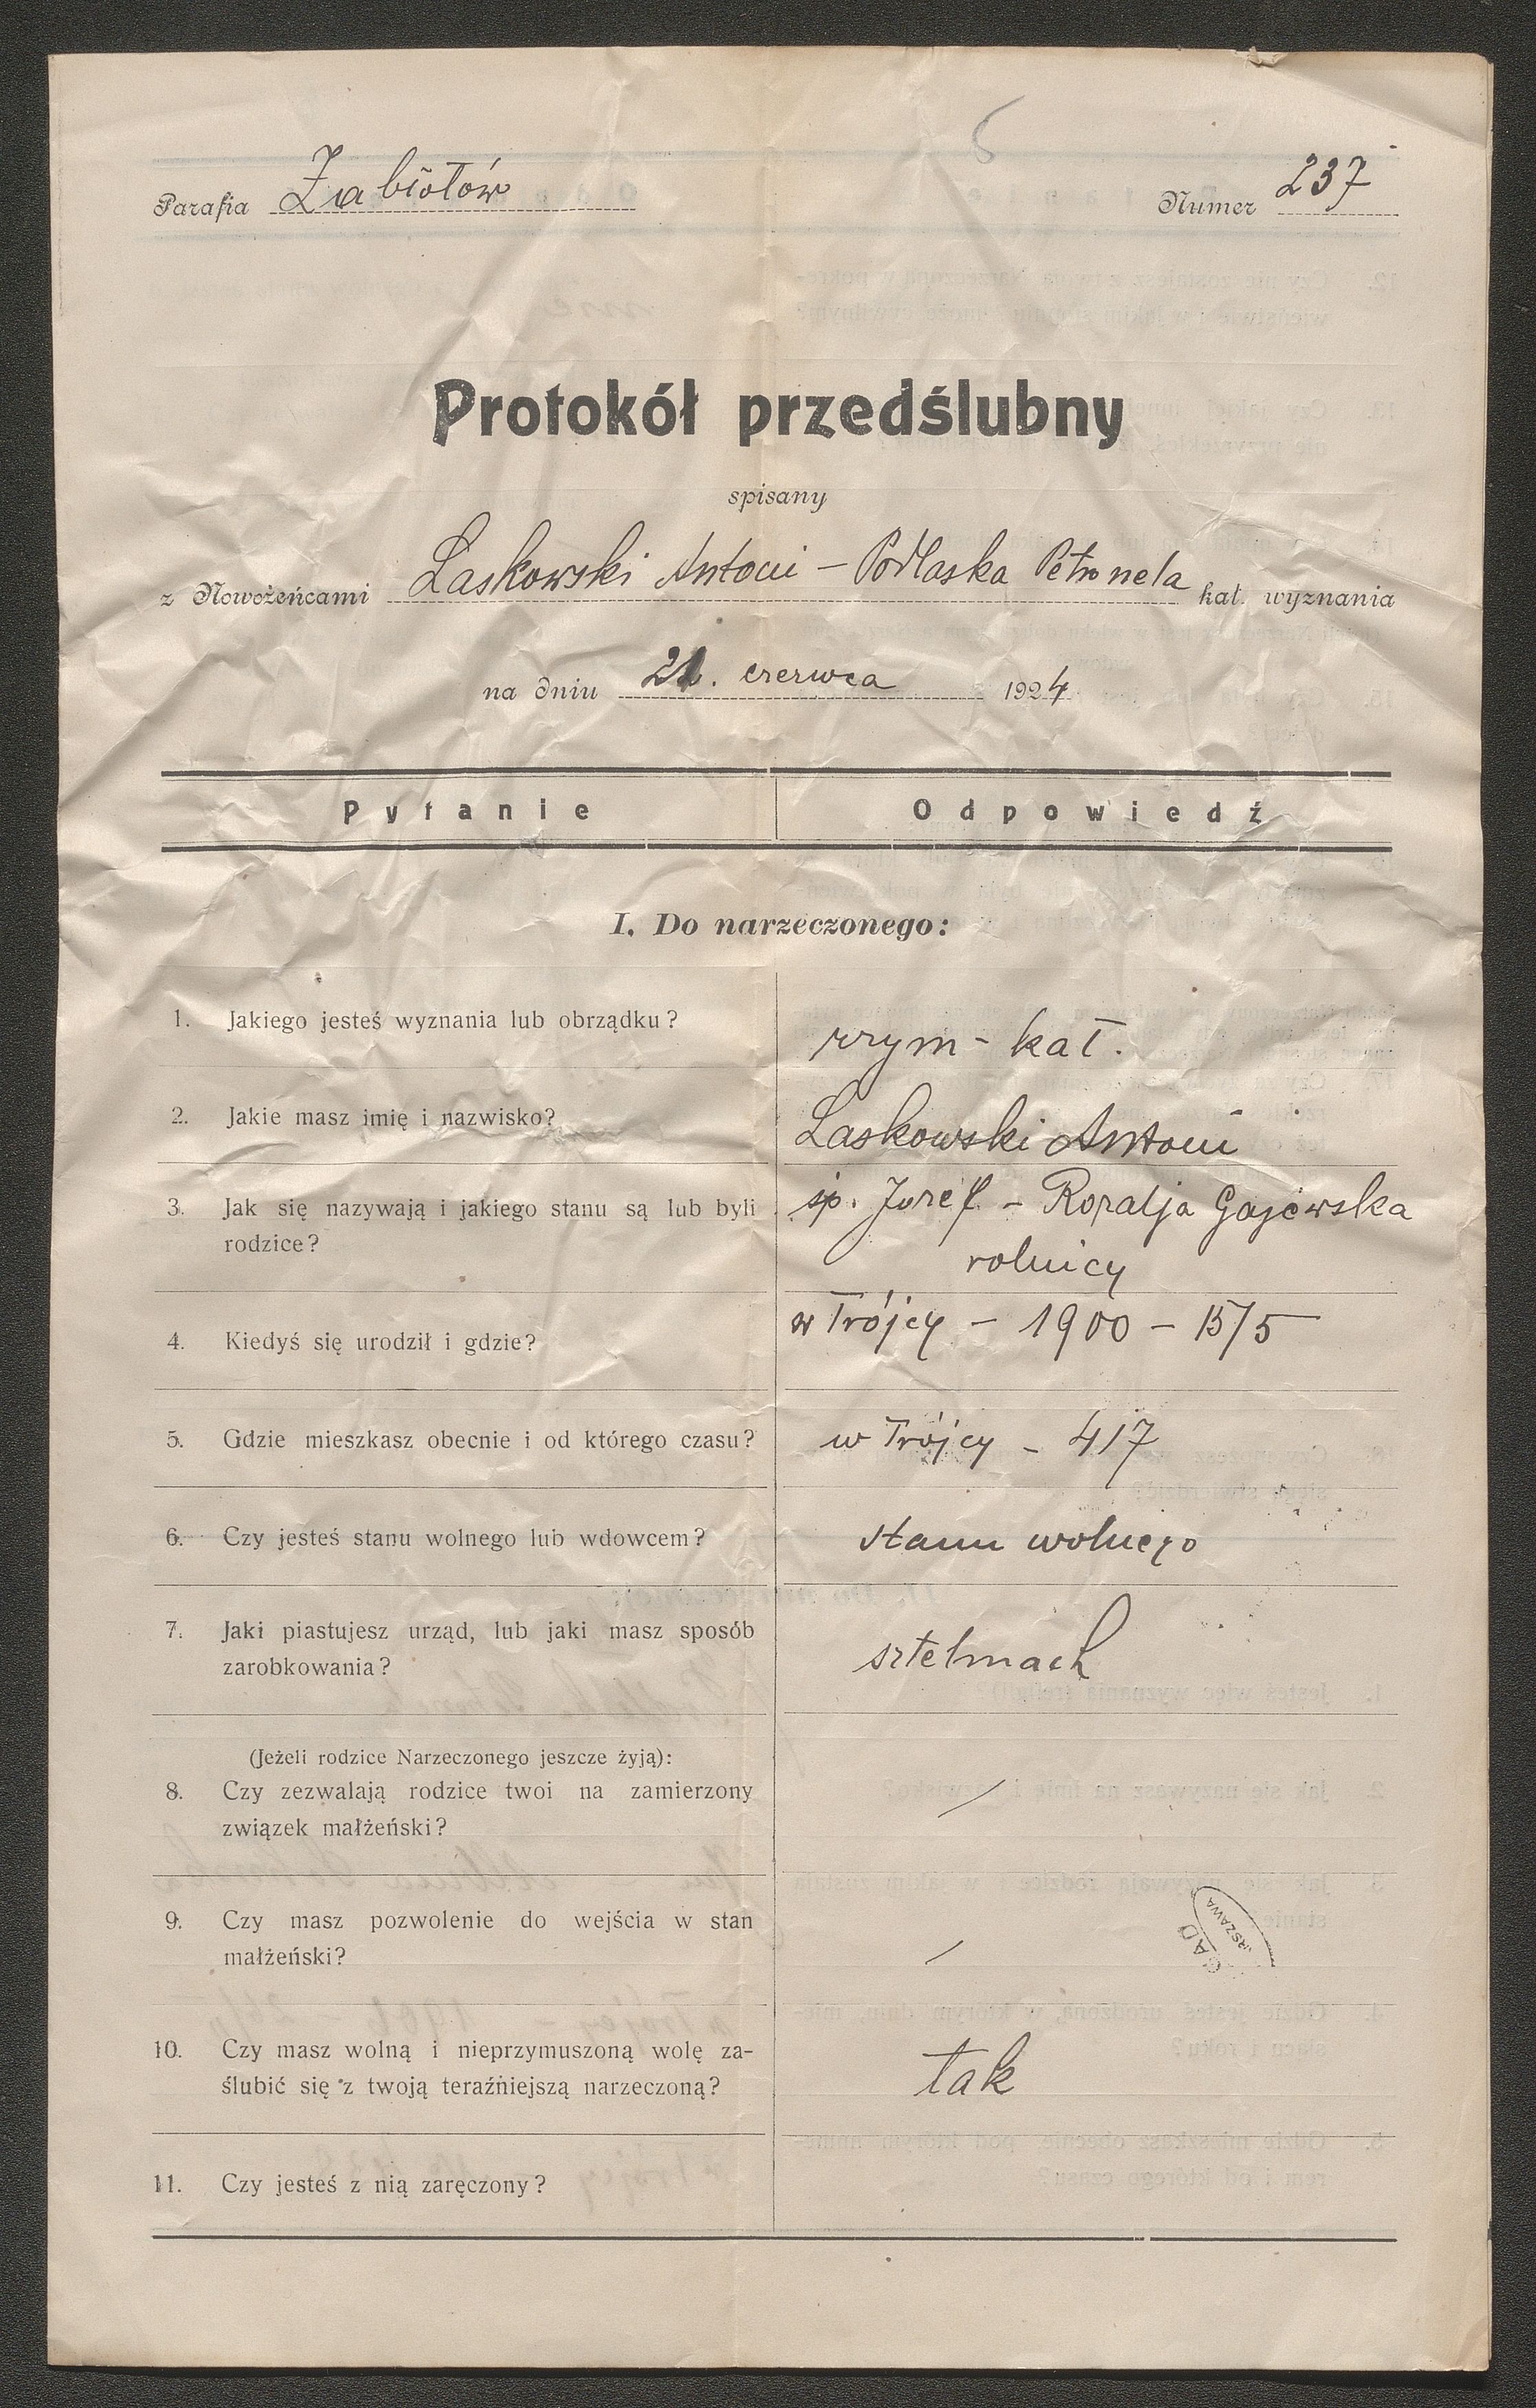 Parafia Zabłotów
Numer 237
Protokół przedślubny
spisany
z Nowożeńcami Laskowski Antoni – Podlaska Petronela kat. wyznania
na dniu 21. czerwca 1924
Pytanie Odpowiedź
I. Do narzeczonego:
1. Jakiego jesteś wyznania lub obrządku?
rzym-kat.
2. Jakie masz imię i nazwisko?
Laskowski Antoni
3. Jak się nazywają i jakiego stanu są lub byli
rodzice?
śp. Józef – Rozalja Gajewska
rolnicy
4. Kiedyś się urodził i gdzie?
w Trójcy – 1900 – 15/5
5. Gdzie mieszkasz obecnie i od którego czasu?
w Trójcy – 417
6. Czy jesteś stanu wolnego lub wdowcem?
stanu wolnego
7. Jaki piastujesz urząd, lub jaki masz sposób
zarobkowania?
sztelmach
(Jeżeli rodzice Narzeczonego jeszcze żyją):
8. Czy zezwalają rodzice twoi na zamierzony
związek małżeński?
/
9. Czy masz pozwolenie do wejścia w stan
małżeński?
/
10. Czy masz wolną i nieprzymuszoną wolę za-
ślubić się z twoją teraźniejszą narzeczoną?
tak
11. Czy jesteś z nią zaręczony?